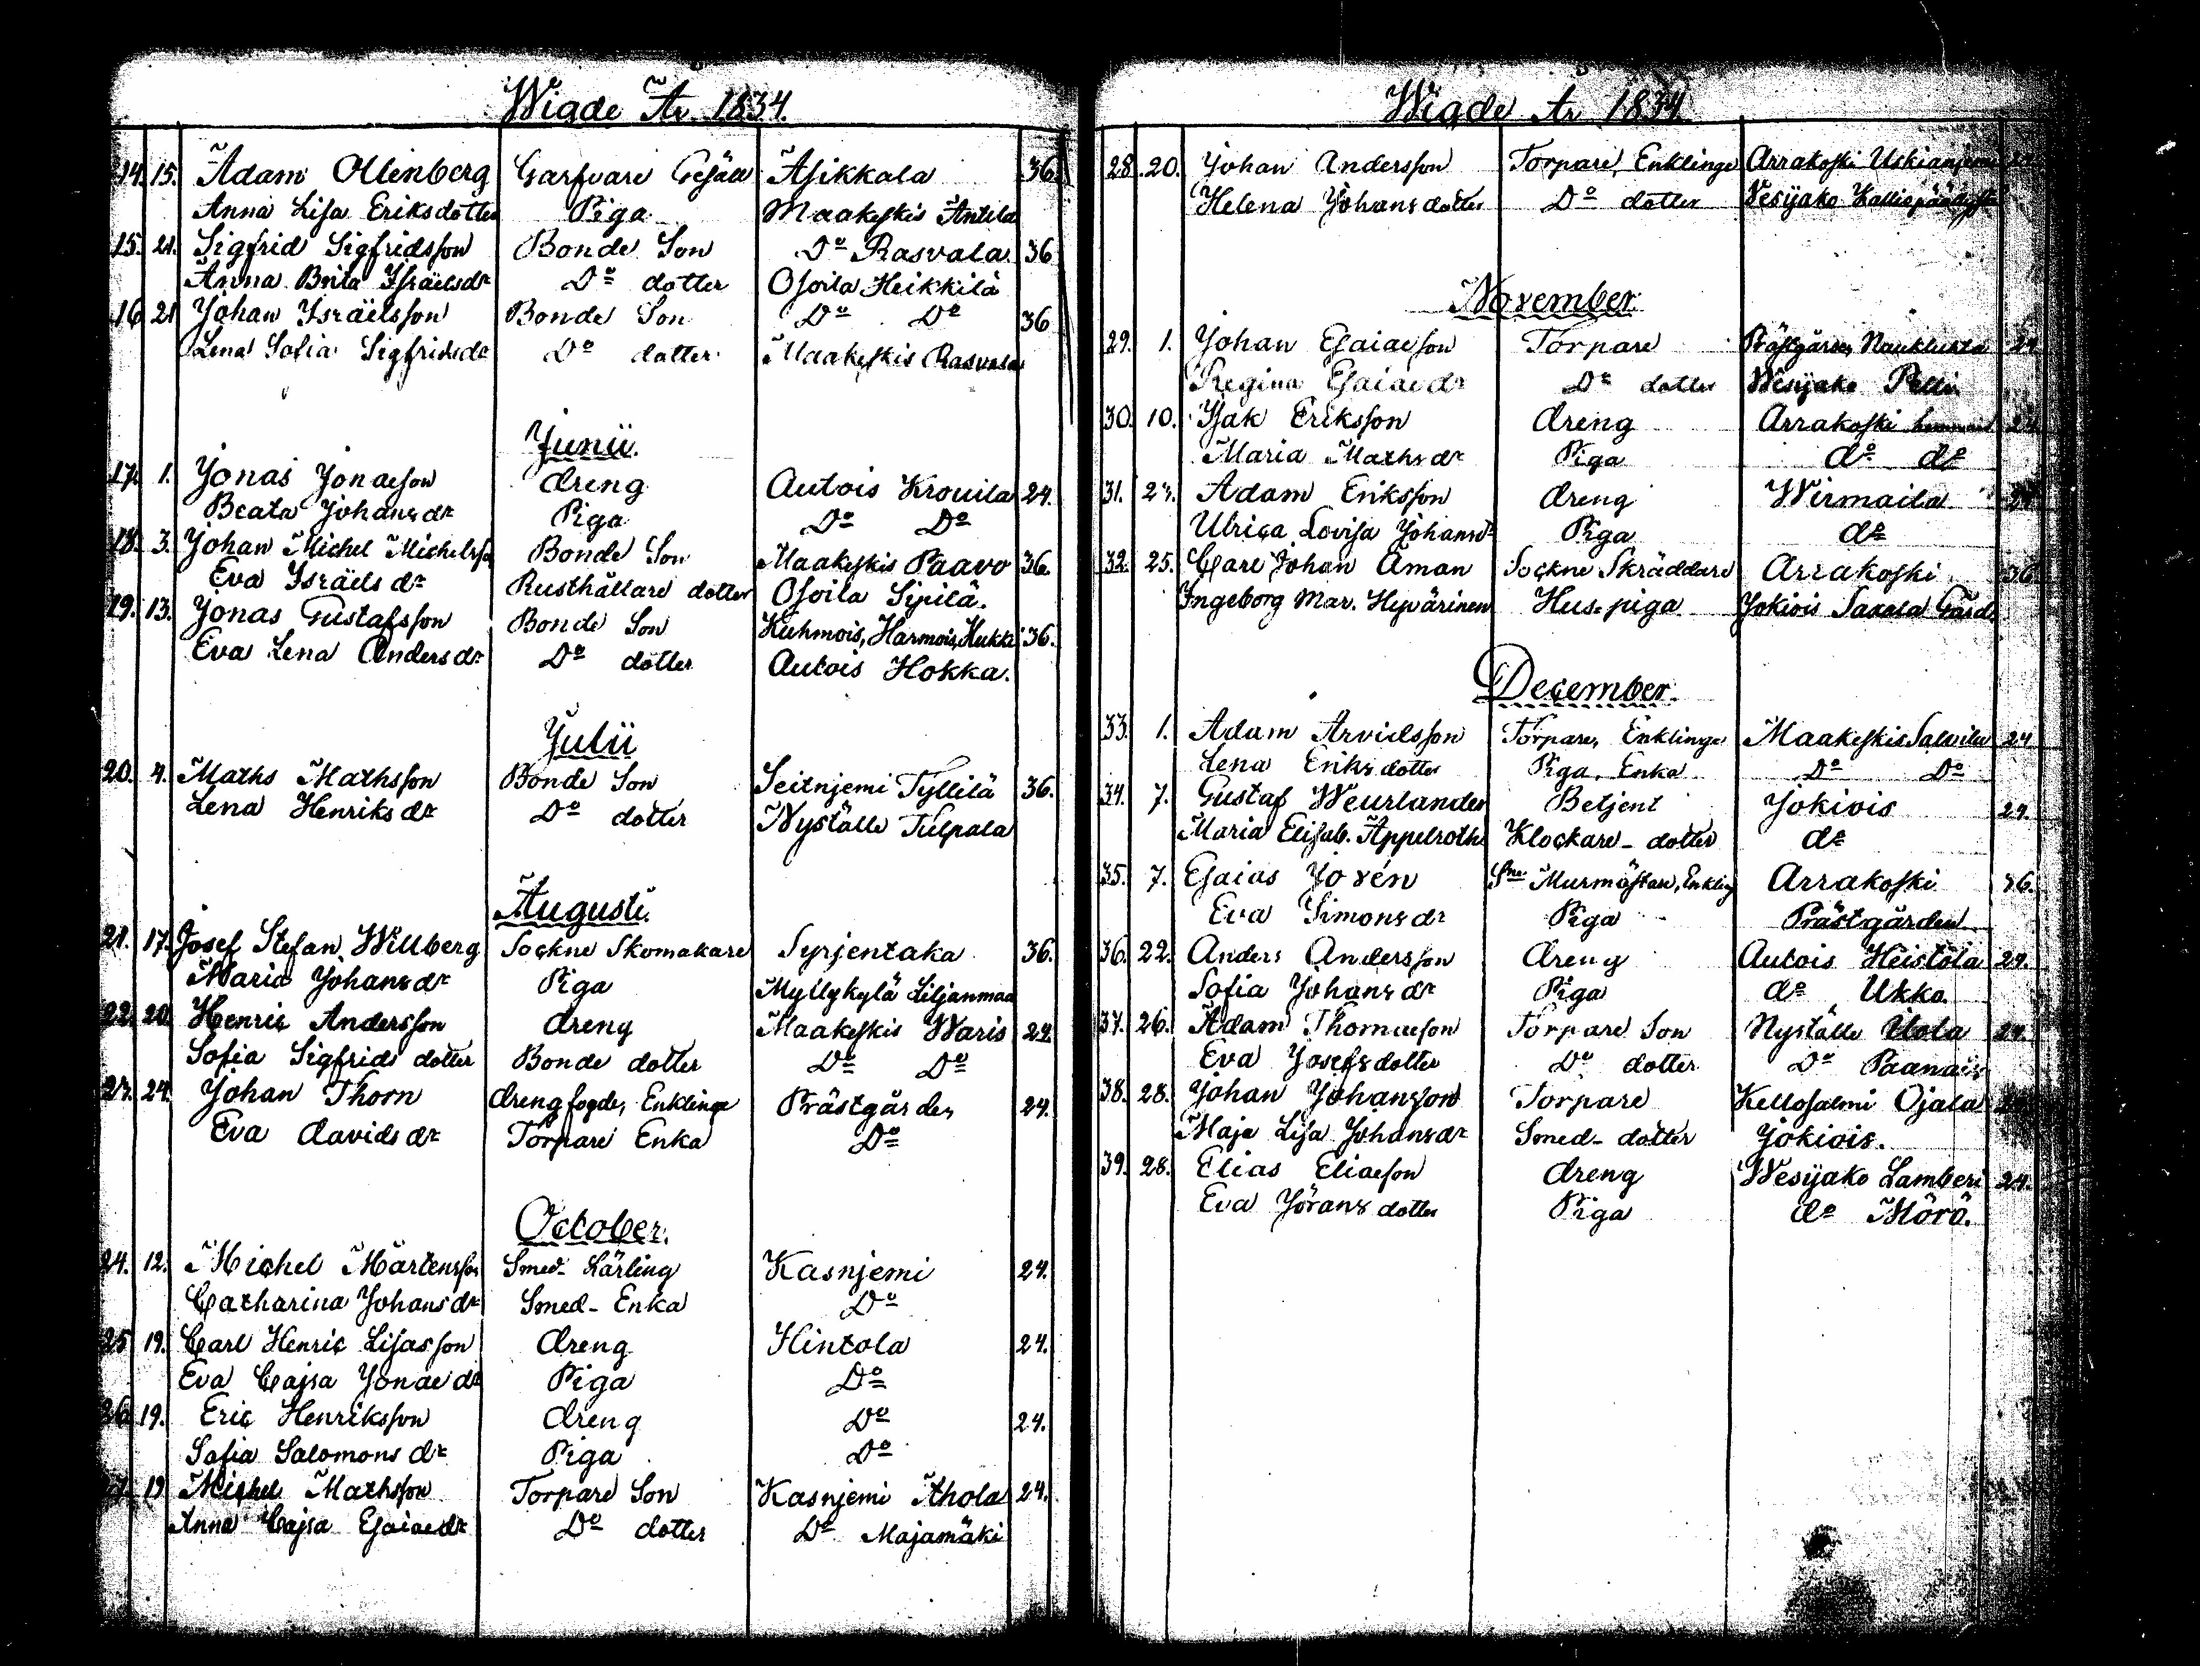 Wigde År 1834.
14. 15. Adam Ollenberg Garfvare Gesäll Asikkala 36.
Anna Lisa Eriksdotter Piga Maakeskis Antila
15. 21. Sigfrid Sigfridsson Bonde Son Do Rasvala 36
Anna Brita Israelsdr Do dotter Osoila Heikkilä
16 21 Johan Israëlsson Bonde Son Do Do 36
Lena Sofia Sigfridsdr Do dotter Maakeskis Rasvala
Junii.
17. 1. Jonas Jonaeson dreng Autois Krouila 24.
Beata Johansdr Piga Do Do
18. 3. Johan Michel Michelsson Bonde Son Maakeskis Paavo 36.
Eva Israëlsdr Rusthållare dotter Osoila Sipilä.
19. 13. Jonas Gustafsson Bonde Son Kuhmois, Harmois, Hukki 36.
Eva Lena Andersdr Do dotter Autois Hokka.
Julii
20. 4. Maths Mathsson Bonde Son Seitnjemi Tyllilä 36.
Lena Henriksdr Do dotter Nyställe Tulpala
Augusti.
21. 17. Josef Stefan Willberg Sockne Skomakare Syrjentaka 36.
Maria Johansdr Piga Myllykylä Liljanmaa
22. 20. Henric Andersson dreng Maakeskis Waris 24.
Sofia Sigfrids dotter Bonde dotter Do Do
23. 24. Johan Thorn drengfogde, Enklinge Prästgården 24.
Eva davidsdr Torpare Enka Do
October.
24. 12. Michel Mårtensson Smed- Lärling Kasnjemi 24.
Catharina Johansdr Smed- Enka Do
25 19. Carl Henric Lisasson dreng Hintola 24.
Eva Cajsa Jonaedr Piga Do
26 19. Eric Henriksson dreng Do 24.
Sofia Salomonsdr Piga Do
27. 19 Michel Mathsson Torpare Son Kasnjemi Ahola 24.
Anna Cajsa Esaiaedr Do dotter Do Majamäki
Wigde År 1834.
28. 20. Johan Andersson Torpare, Enklinge Arrakoski
Helena Johansdotter Do dotter Vesijako
November.
29. 1. Johan Esaiaeson Torpare Prästgården 24
Regina Esaiaedr Do dotter Wesijako Pelli.
30. 10. Isak Eriksson dreng Arrakoski 24
Maria Mathsdr Piga do do
31. 23. Adam Eriksson dreng Wirmaila 24
Ulrica Lovisa Johansdr Piga do
32. 25. Carl Johan Åman Sockne Skräddare Arrakoski 36
Ingeborg Mar. Hyvärinen Hus-piga Jokiois Saxala Gård.
December.
33. 1. Adam Arvidsson Torpare, Enklinge Maakeskis Salvila 24
Lena Eriksdotter Piga, Enka Do Do
34. 7. Gustaf Weurlander Betjent Jokiois 24.
Maria Elisab. Appelroth Klockare- dotter do
35. 7. Esaias Jovén Sne Murmästare, Enkling Arrakoski 36.
Eva Simonsdr Piga Prästgården
36. 22. Anders Andersson dreng Autois Heistola 24.
Sofia Johansdr Piga do Ukko.
37. 26. Adam Thomaeson Torpare Son Nyställe Utola 24.
Eva Josefsdotter Do dotter Do
38. 28. Johan Johansson Torpare Kellosalmi Ojala
Maja Lisa Johansdr Smed- dotter Jokiois.
39. 28. Elias Eliaeson dreng Wesijako Lamberi 24.
Eva Jörans dotter Piga do Mörö.